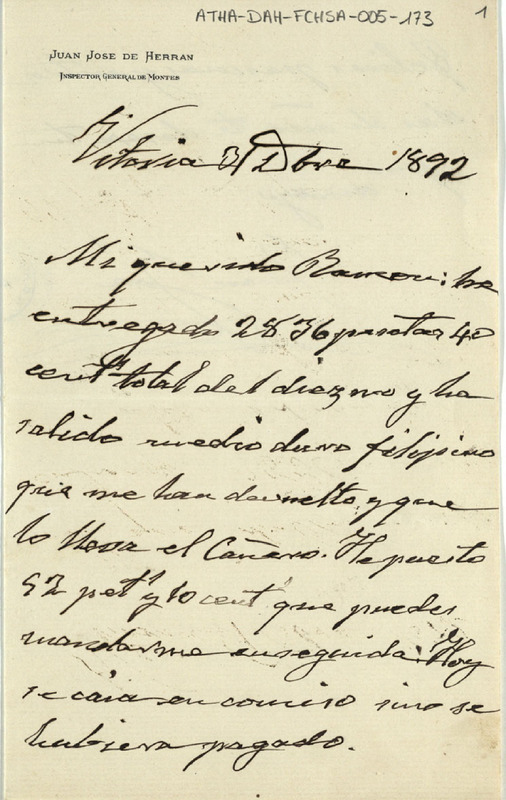 ATHA-DAH-FCHSA-005-173
1
JUAN JOSE DE HERRAN
INSPECTOR GENERAL DE MONTES
Vitoria 31 Dbre 1892
Mi querido Ramon: he
entregado 2836 pesetas 40
cents total del diezmo y ha
salido medio duro filipino
que me han devuelto y que
lo lleva el Cañero. He puesto
92 pets y 10 cents que puedes
mandarme enseguida. Hoy
se caia en comiso sino se
hubiera pagado.